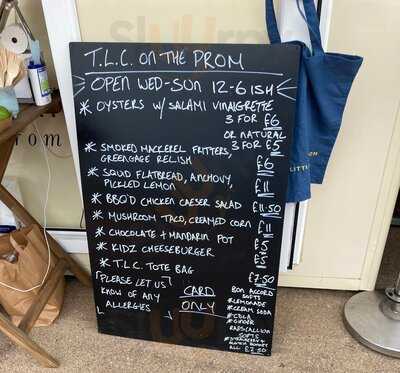 T.L.C. ON THE PROM
OPEN WED-SUN 12-6ISH
* OYSTERS W/ SALAMI VINAIGRETTE
3 FOR £6
OR NATURAL
3 FOR £5
* SMOKED MACKEREL FRITTERS,
GREENGAGE RELISH £6
* SQUID FLATBREAD, ANCHOVY,
PICKLED LEMON £11
* BBQ'D CHICKEN CAESER SALAD £11.50
* MUSHROOM TACO, CREAMED CORN £11
* CHOCOLATE + MANDARIN POT £5
* KIDZ CHEESEBURGER £5
* T.L.C. TOTE BAG £7.50
PLEASE LET US
KNOW OF ANY
ALLERGIES
CARD
ONLY
BON ACCORD
SOFTS
* LEMONADE
* CREAM SODA
* COLA
* GINGER
RAPSCALLION
SOFTS
ALL £2.50
LITTL